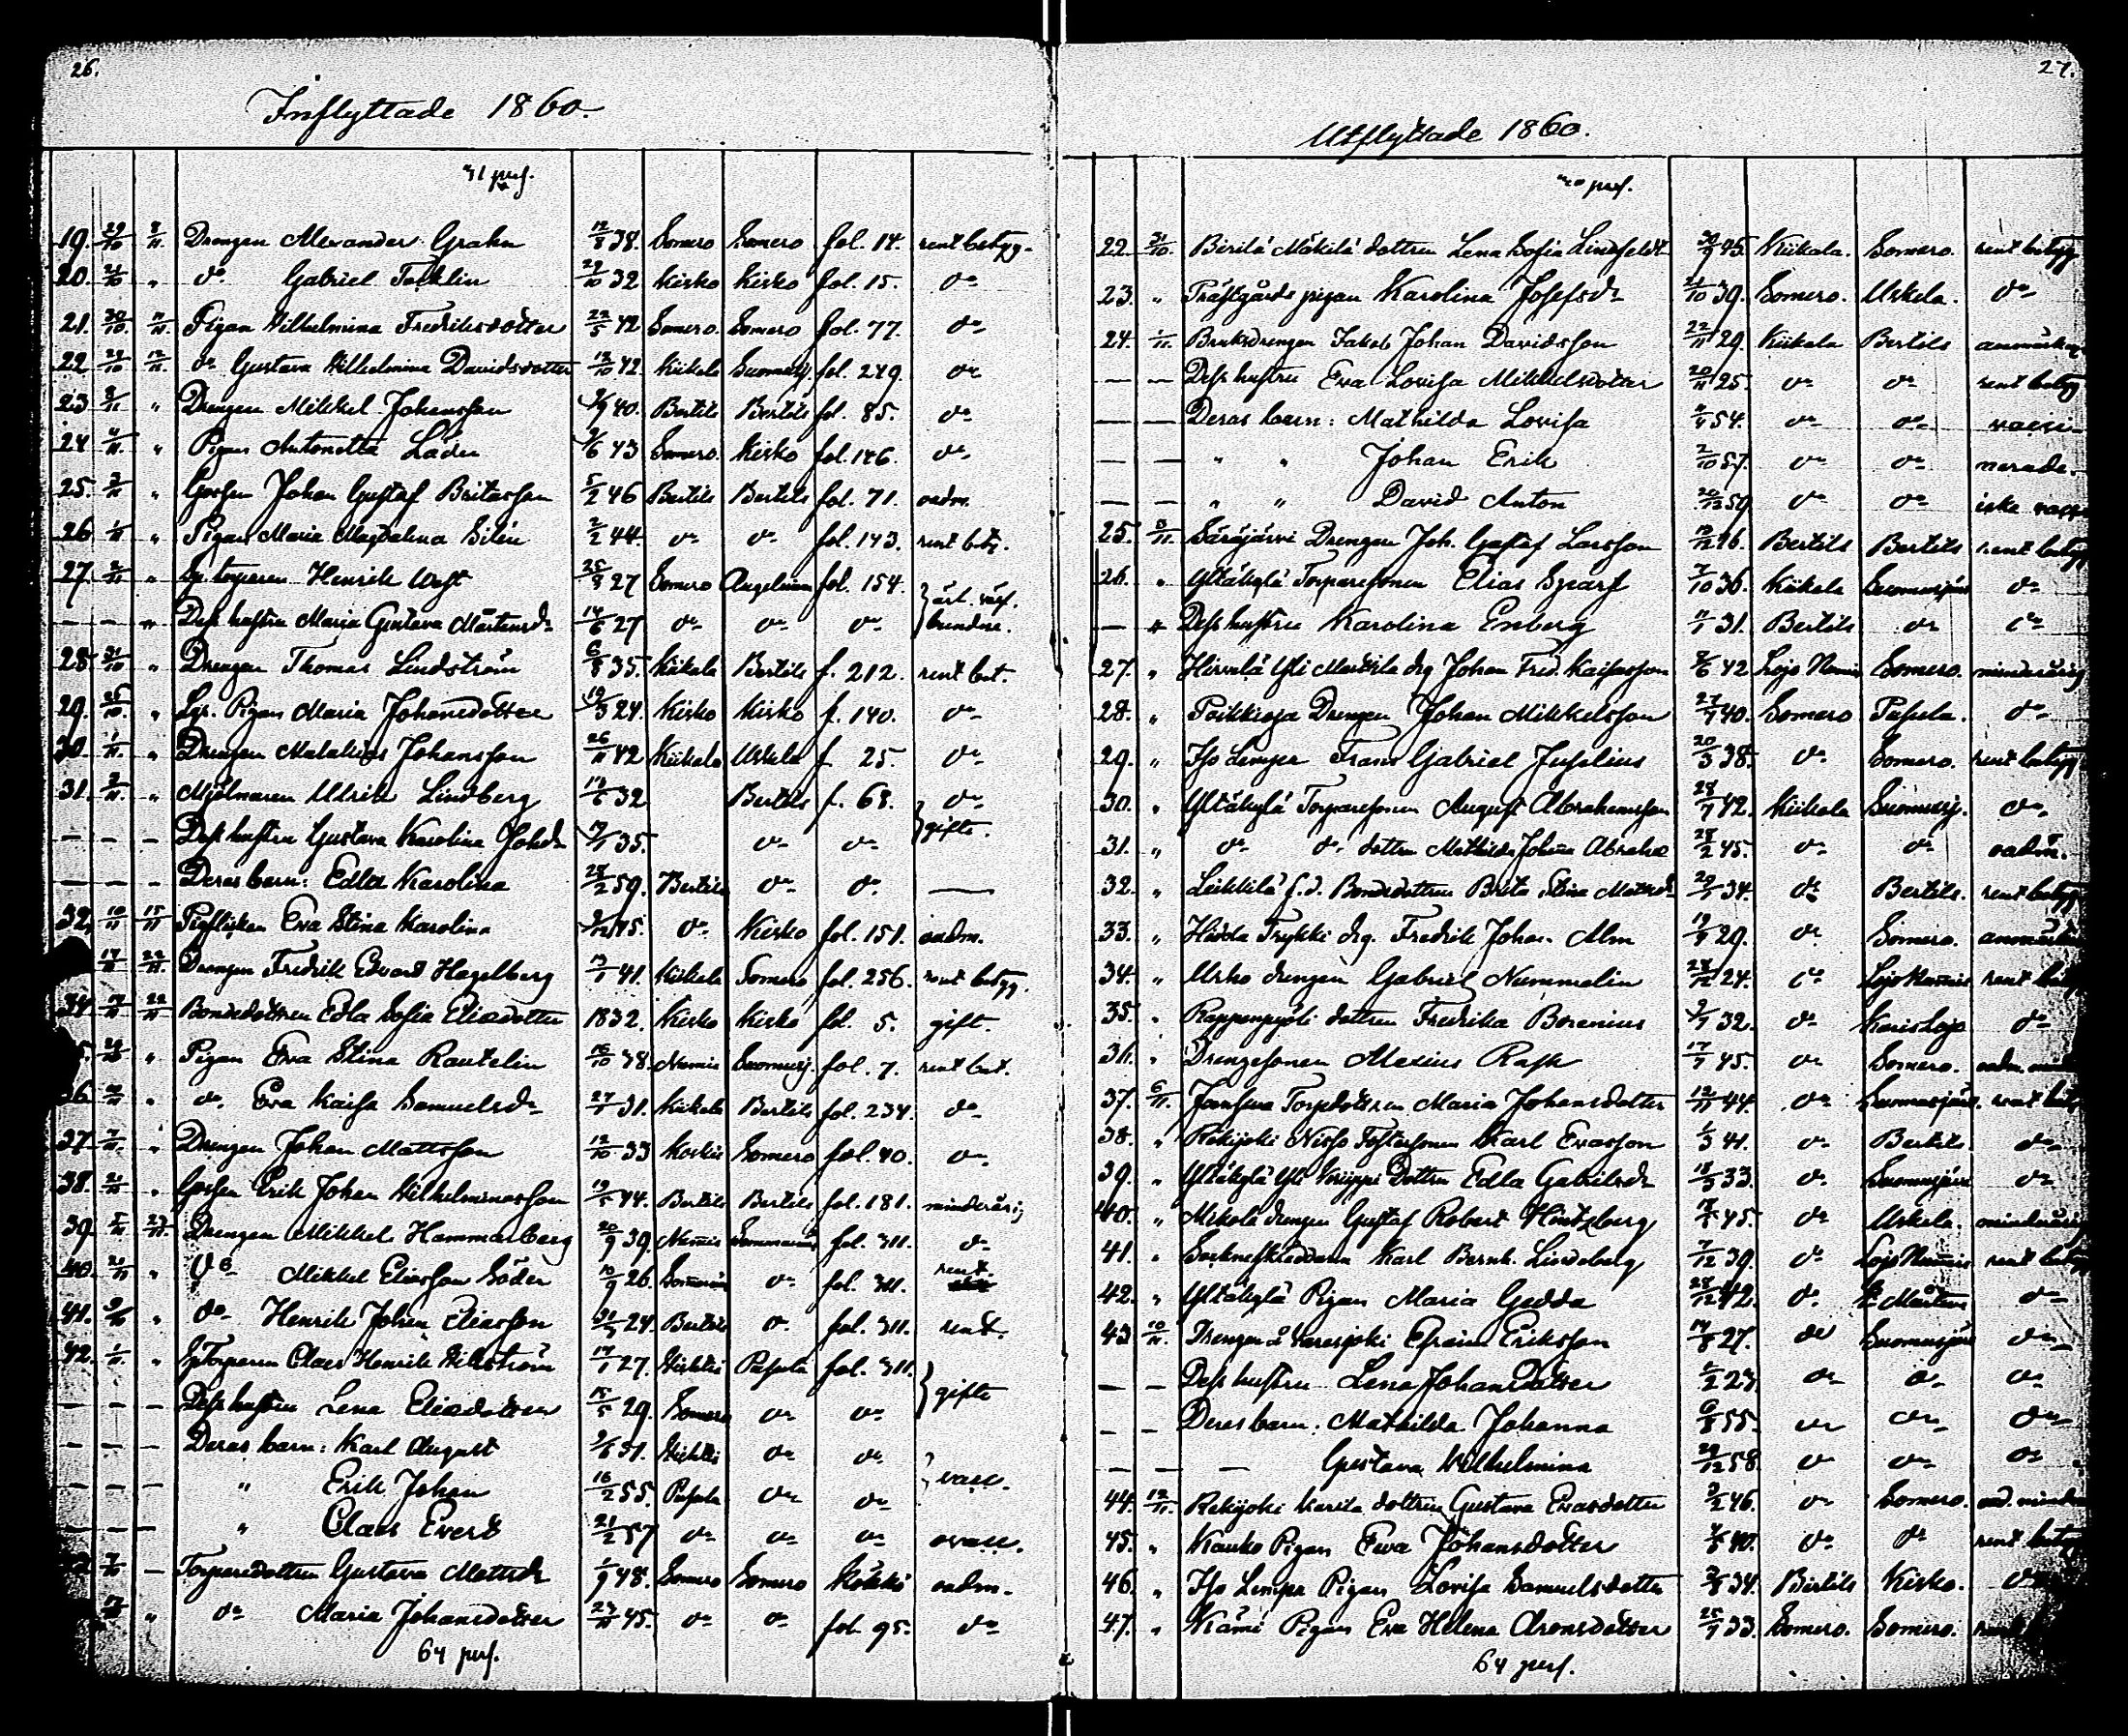 26.
Inflyttade 1860.
31 pers.
19. 29/10 8/11 Drengen Alexander Grahn 12/8 38. Somero Somero fol. 14. rent betyg.
20. 21/10 " do Gabriel 29/10 32 Kisko Kisko fol. 15. do
21. 30/10 11/11 Pigan Wilhelmina Fredriksdotter 22/5 42 Somero. Somero fol. 77. do
22 29/10 12/11 do Gustava Wilhelmina Davidsdotter 13/10 42. Kiikala Suomusj. fol. 249. do
23 " Drengen Mikkel Johansson 40. Bertils Bertils fol. 85. do
24 4/11 " Pigan Antonetta 43 Somero. Kisko fol. 146. do
25. 3/11 " Gossen Johan Gustaf Britasson 5/2 46 Bertils Bertils fol. 71. oadm.
26 1/11 " Pigan Maria Magdalena Silén 2/2 44. do do fol. 143. rent bet.
27. 2/11 " Henrik 25/8 27 Somero fol. 154.
— — " Dess hustru Maria Gustava Mårtensdr 14/6 27 do do do bundne.
28 31/10 " Drengen Thomas Lindström 6/8 35. Kiikala Bertils f. 212. rent bet.
29. 25/10 " Pigan Maria Johansdotter 19/3 24. Kisko Kisko f. 140. do
30. 1/11 " Drengen Matthias Johansson 26/11 42 Kiikala Uskela f 25. do
31. 2/11 " Mjölnaren Ulrik Lindberg 14/6 32 Bertils f. 68. do
— — Dess hustru Gustava Karolina Johdr 35. do do gifte.
— — — Deras barn: Edla Karolina 28/2 59. Bertils do do —
32. 10/11 15/11 Eva Stina Karolina 45. do Kisko fol. 151. oadm.
14/11 22/11 Drengen Fredrik Edvard Hagelberg 13/7 41. Kiikala Somero fol. 256. rent betyg.
34. 22/11 Bondedottren Edla Sofia Eliædotter 1832. Kisko Kisko fol. 5. gift.
" Pigan Eva Stina Rautelin 16/10 38. Nummis Suomusj. fol. 7. rent bet.
36. " do Eva Kaisa Samuelsdr 27/7 31. Kiikala Bertils fol. 234. do
37. 7/11 " Drengen Johan Mattsson 12/10 33 Koskis Somero fol. 40. do
38. 21/10 " Gossen Erik Johan Wilhelminasson 19/5 44. Bertils Bertils fol. 181. minderårig
39. 5/11 Drengen Mikkel Hammarberg 20/9 39. Nummis fol. 311. do
40. " Do Mikkel Eliasson Söder 10/9 26. do fol. 311. rent
41. " do Henrik Johan Eliasson 24. Bertils do fol. 311. rent.
42. 1/11 " Claes Henrik Wikström 17/1 27. Wichtis Pusula fol. 311.
— — — Dess hustru Lena Eliædotter 15/5 29. Somero do do gifte
— — — Deras barn: Karl August 51. Wichtis do do
— — — " Erik Johan 16/2 55. Pusula do do vacc.
— — — " Claes Evert 21/2 57 do do do ovacc.
— Torparedottren Gustava Mattsdr 1/9 48. Somero Somero oadm.
" do Maria Johansdotter 23/11 45. do do fol. 95. do
64 pers.
27.
Utflyttade 1860.
pers.
22. 31/10. Mäkilä dottren Lena Sofia Lindfeldt 30/9 95. Kiikala. Somero. rent betyg
23. " Prästgårds pigan Karolina Josefsdr 21/10 39. Somero. Uskela. do
24. 1/11. Bruksdrengen Jakob Johan Davidsson 22/11 29. Kiikala Bertils
— — Dess hustru Eva Lovisa Mikkelsdotter 20/11 25. do do rent betyg
— — Deras barn: Mathilda Lovisa 54. do do vacci-
— — " " Johan Erik 2/10 57. do do nerade.
— — " " David Anton 20/12 59 do do icke vacc.
25. Särkijärvi Drengen Joh. Gustaf Larsson 12/12 26. Bertils Bertils rent betyg
26. " Yltäkylä Torparesonen Elias Sparf 7/10 36. Kiikala Suomusjärvi do
— " Dess hustru Karolina Enberg 31. Bertils do do
27. " Yli drg Johan Fred. Kaisasson 42 Lojo Nummis Somero. minderårig
28. " Poikkioja Drengen Johan Mikkelsson 27/7 40. Somero Pusula. do
29. " Iso Lemper Frans Gabriel Juselius 20/3 38. do Somero. rent betyg
30. " Yltäkylä Torparesonen August Abrahamsson 28/7 42. Kiikala Suomusj. do
31. " do do dottren Mathilda Johanna Abrahams 28/2 45. do do oadm.
32. " Leikkilä f.d. Bondedottren Brita Stina Mattsdr 34. do Bertils. rent betyg
33. " drg. Fredrik Johan Alm 19/9 29. do Somero.
34. " drengen Gabriel Nummelin 28/12 24. do Lojo Nummis rent betyg
35. " dottren Fredrika Borenius 32. do Karislojo do
36. " Drengesonen Alexius Rask 17/7 45. do Somero.
37. 6/11. Torpdottren Maria Johansdotter 12/11 44. do Suomusjärvi. rent
38. " Rekijoki Karl Evasson 1/3 41. do Bertils. do
39. " Yltäkylä Yli Dottren Edla Gabrielsdr 18/3 33. do Suomusjärvi do
40. " drengen Gustaf Robert Hintzberg 45. do Uskela. minderårig
41. " Sockneskräddaren Karl Bernh. Lindeberg 7/12 39. do Lojo Nummis rent betyg
42. " Yltäkylä Pigan Maria Gedda 28/12 42. do St Mårtens do
43 10/11. Drengen å Varesjoki Efraim Eriksson 14/8 27. do Suomusjärvi do
— — Dess hustru Lena Johansdotter 23 do do do
— — Deras barn: Mathilda Johanna 6/8 55. do do do
— — — Gustava Wilhelmina 29/12 58 do do do
44. 12/11. Rekijoki dottren Gustava Evasdotter 46. do Somero.
45. " Kauko Pigan Eva Johansdotter 40. do do rent betyg
46. " Iso Lemper Pigan Lovisa Samuelsdotter 34. Bertils Kisko. do
47. " Pigan Eva Helena Aronsdotter 25/7 33. Somero. Somero.
64 pers.